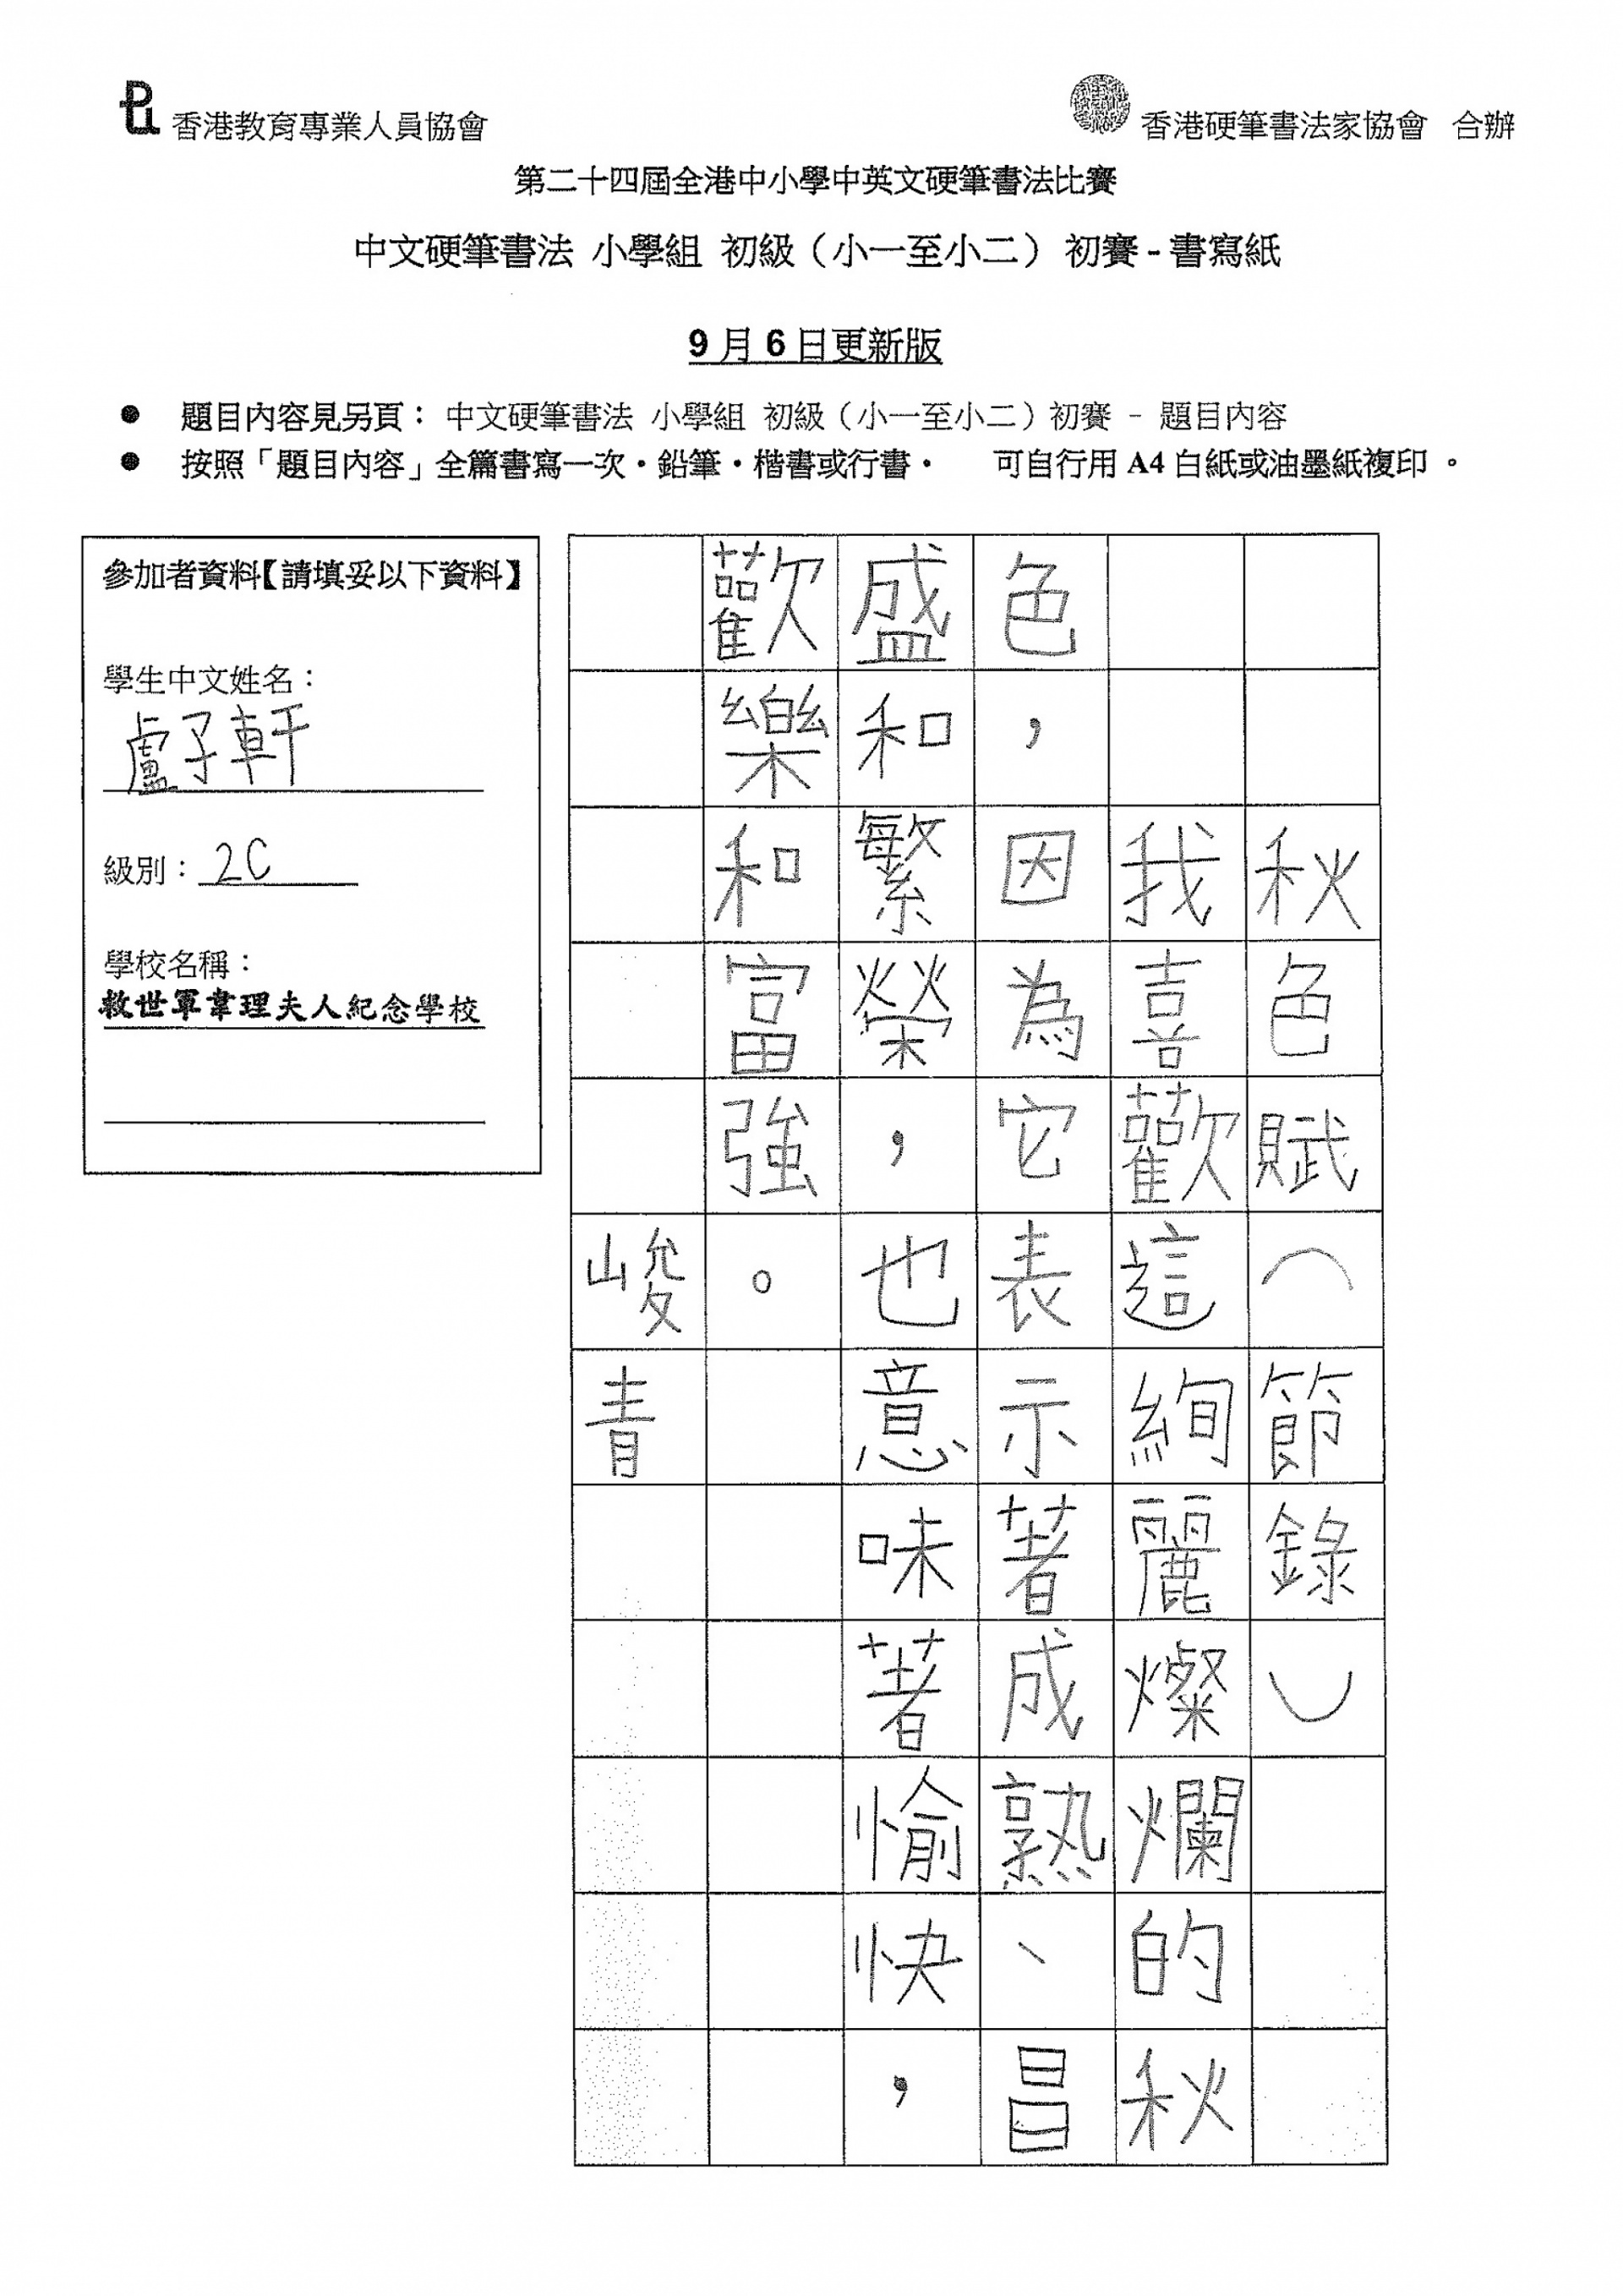 香港教育專業人員協會
香港硬筆書法家協會 合辦
第二十四屆全港中小學中英文硬筆書法比賽
中文硬筆書法 小學組 初級（小一至小二） 初賽 - 書寫紙
9 月 6 日更新版
● 題目內容見另頁： 中文硬筆書法 小學組 初級（小一至小二）初賽 － 題目內容
● 按照「題目內容」全篇書寫一次．鉛筆．楷書或行書． 可自行用 A4 白紙或油墨紙複印 。
參加者資料【請填妥以下資料】
學生中文姓名：
盧子軒
級別：2C
學校名稱：
救世軍韋理夫人紀念學校
秋色賦（節錄）
我喜歡這絢麗燦爛的秋
色，因為它表示著成熟、昌
盛和繁榮，也意味著愉快，
歡樂和富強。
峻青